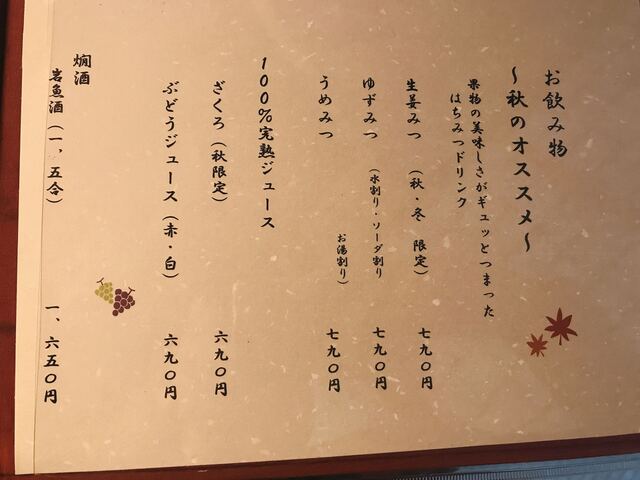 お飲み物
～秋のオススメ～
果物の美味しさがギュッとつまった
はちみつドリンク
生姜みつ（秋・冬 限定） 七九〇円
ゆずみつ（水割り・ソーダ割り 七九〇円
お湯割り）
うめみつ 七九〇円
100%完熟ジュース
ざくろ（秋限定） 六九〇円
ぶどうジュース（赤・白） 六九〇円
燗酒
岩魚酒（一、五合） 一、六五〇円